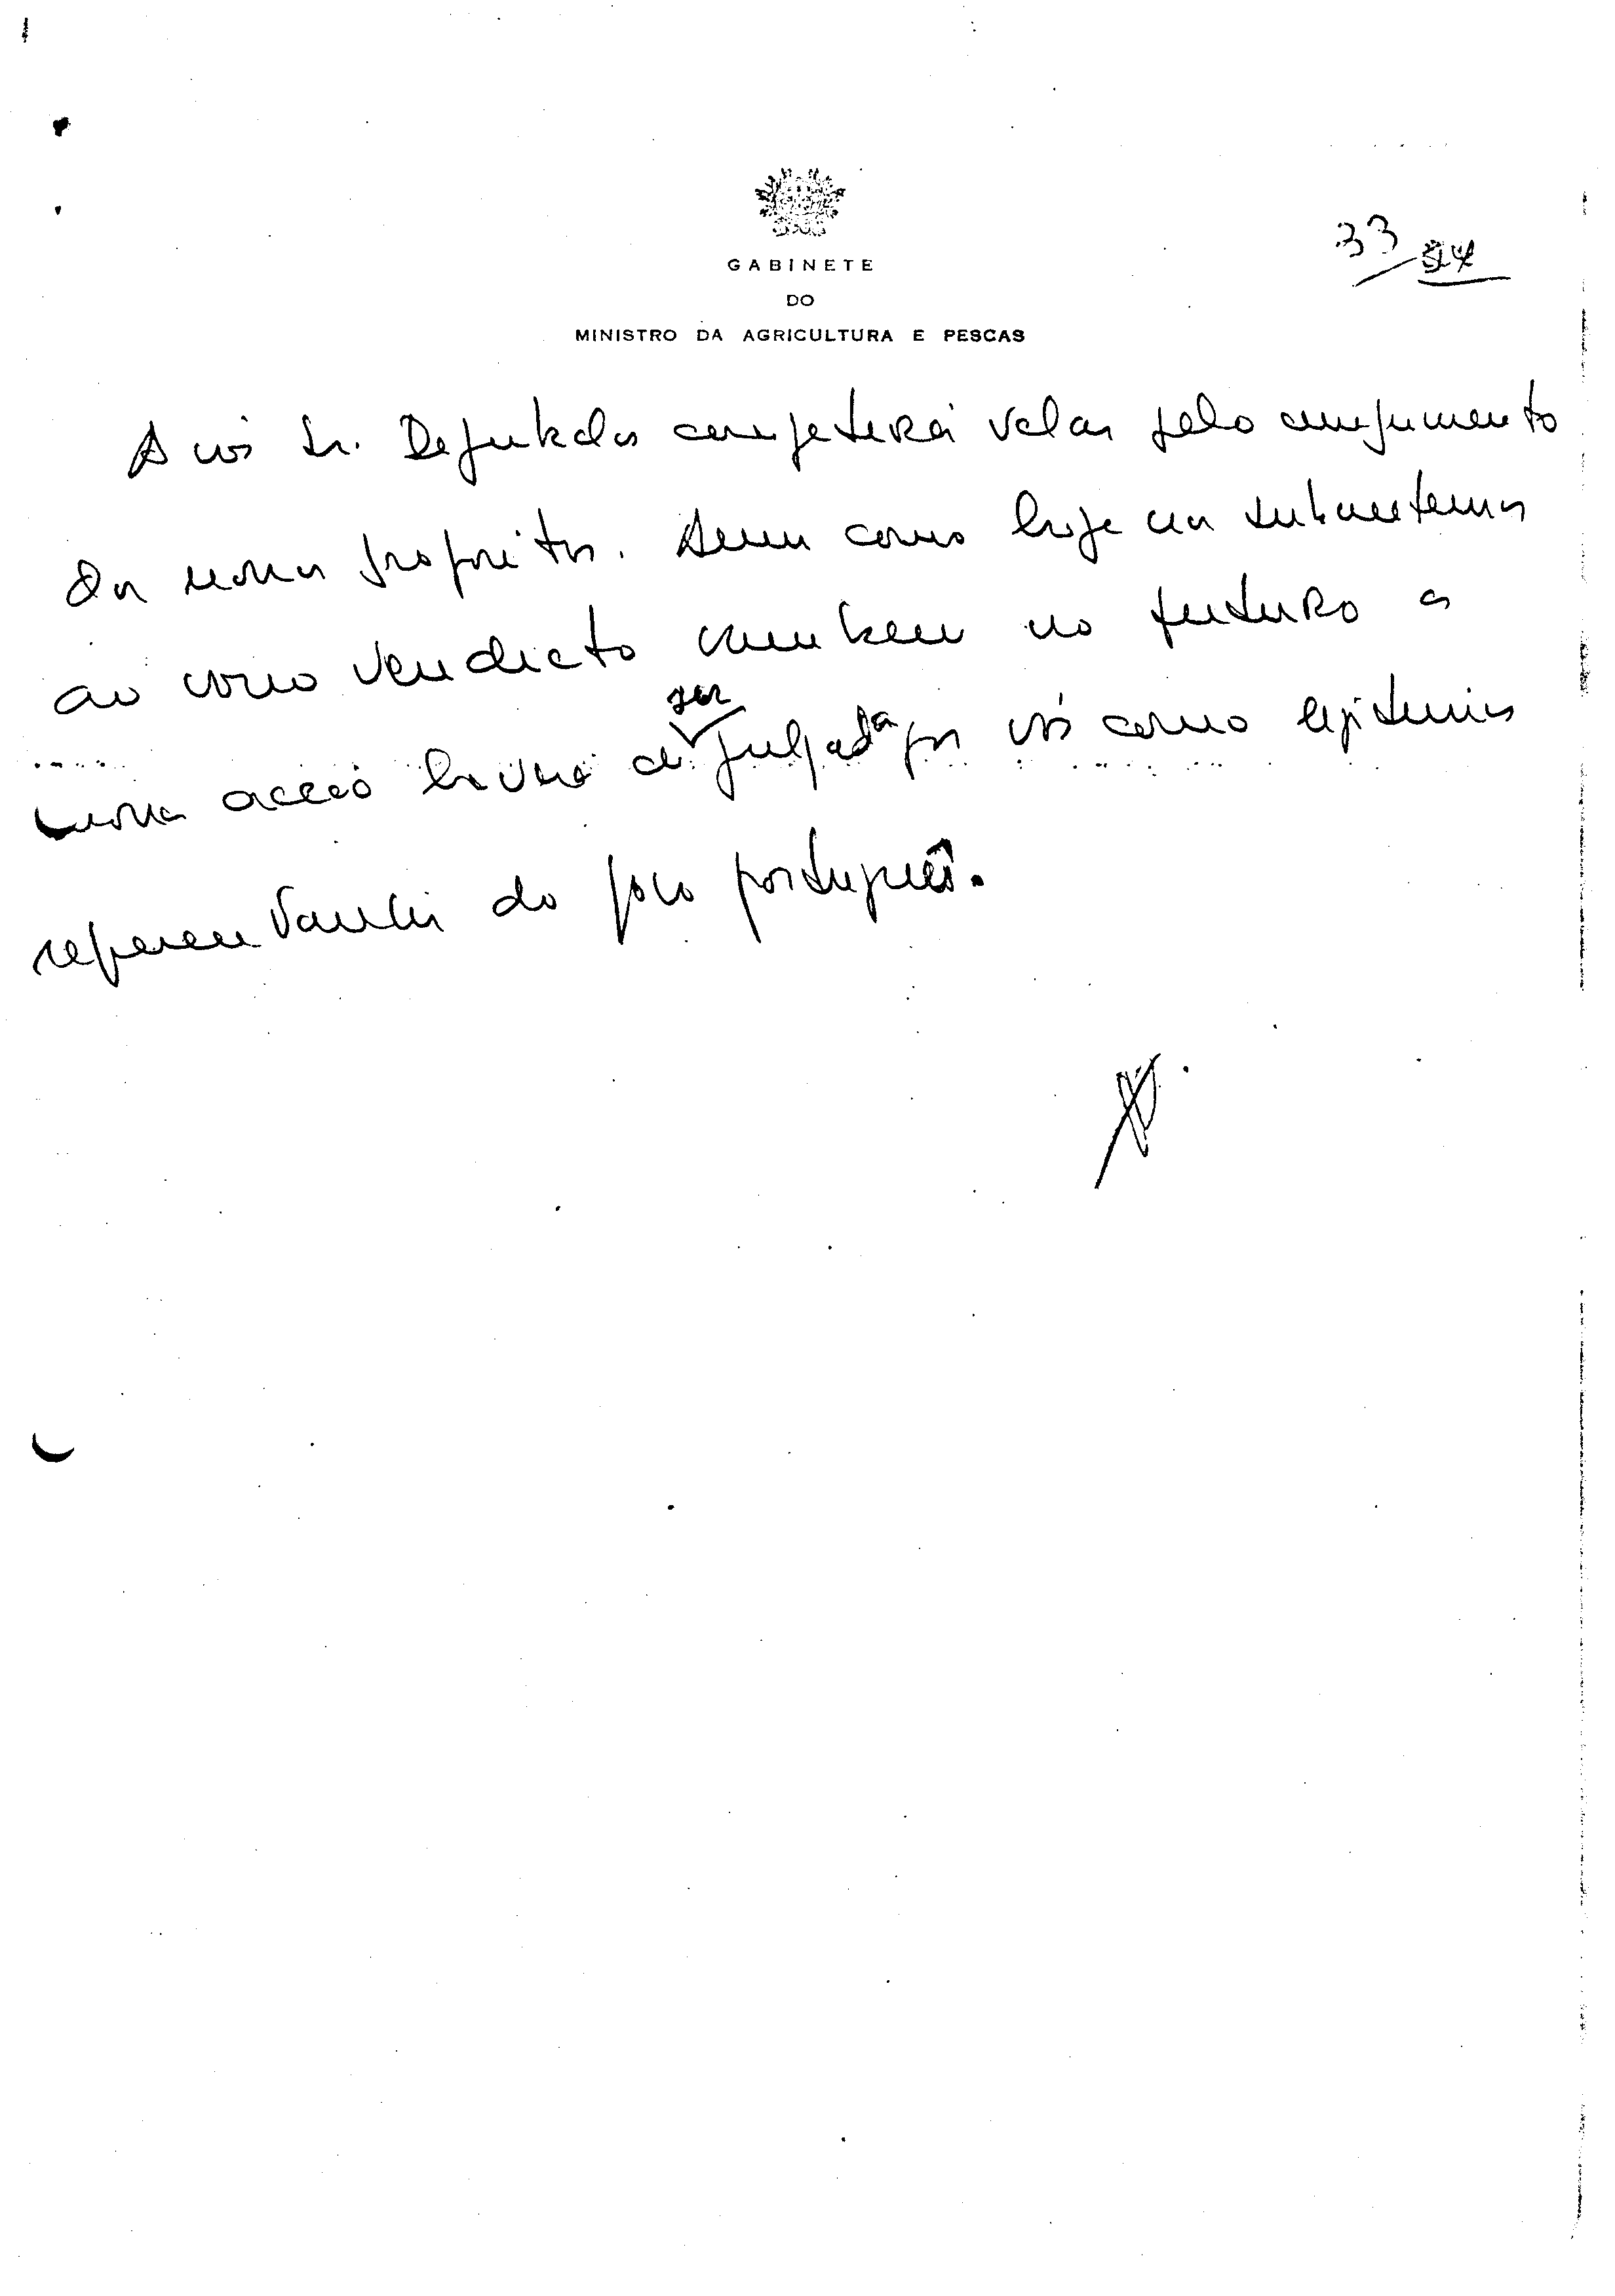 GABINETE
DO
MINISTRO DA AGRICULTURA E PESCAS
33/54
A vós Srs. Deputados competirá velar pelo cumprimento
dos nossos propósitos. Assim como hoje nos submetemos
ao vosso veredicto também no futuro a
nossa acção haverá de ser julgada por vós como legítimos
representantes do povo português.